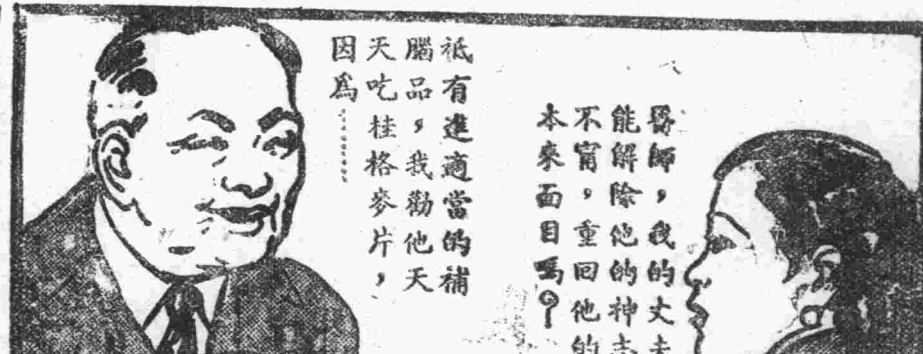 醫師，我的丈夫
能解除他的神志
不甯，重回他的
本來面目嗎？
祇有進適當的補
腦品，我勸他天
天吃桂格麥片，
因爲⋯⋯⋯